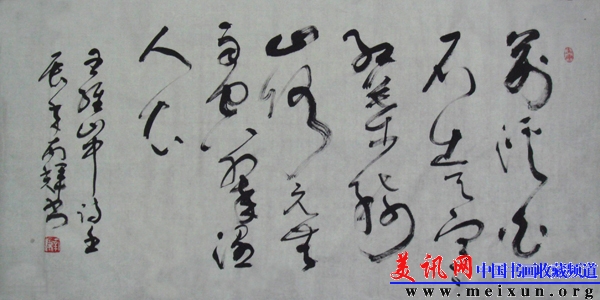 荆溪白
石出天寒
红葉稀
山路元无
雨空翠湿
人衣
王维山中诗壬
辰年辉书
美讯网 中国书画收藏频道
www.meixun.org